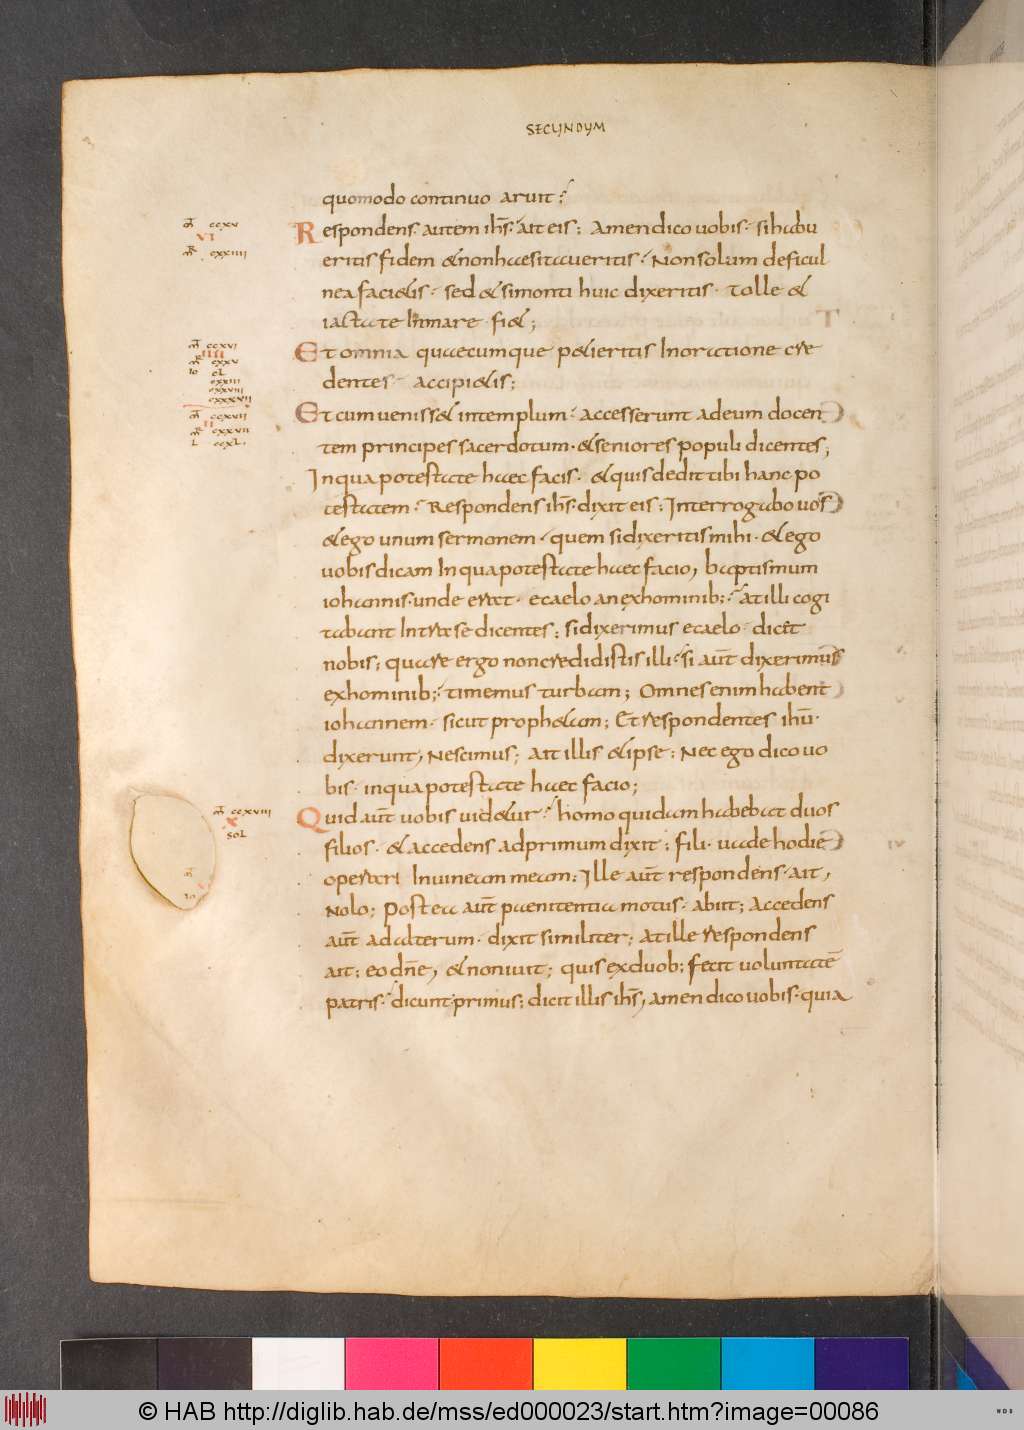 SECUNDUM
quomodo continuo aruit;
Respondens autem ihs̄· ait eis; Amen dico uobis· si habu
eritis fidem & non haesitaueritis· Non solum de ficul
nea faci&is· sed & si monti huic dixeritis· Tolle &
iacta te In mare· fi&;
Et omnia quaecumque p&ieritis In oratione cre
dentes· accipi&is;
Et cumueniss& in templum· accesserunt ad eum docen
tem principes sacerdotum· & seniores populi dicentes;
In qua potestate haec facis· & quis dedit tibi hanc po
testatem· Respondens ihs̄· dixit eis; Interrogabo uos
& ego unum sermonem· quem si dixeritis mihi· & ego
uobis dicam In qua potestate haec facio, baptismum
iohannis· unde erat· e caelo an ex hominib;· At illi cogi
tabant Intra se dicentes; si dixerimus e caelo· dicet
nobis; quare ergo non credidistis illi· si aut̄ dixerimus
ex hominib;· timemus turbam; Omnes enim habent
iohannem· sicut proph&am; Et respondentes ihū·
dixerunt, Nescimus; Ait illis & ipse; Nec ego dico uo
bis· in qua potestate haec facio;
Quid aut̄ uobis uid&ur· homo quidam habebat duos
filios· & accedens ad primum dixit; fili· uade hodie
operari In uineam meam; Ille aut̄ respondens· ait,
Nolo; Postea aut̄ paenitentia motus· abiit; Accedens
aut̄ ad alterum· dixit similiter; At ille respondens
ait; eo dn̄e, & non iuit; quis ex duob; fecit uoluntatē
patris· dicunt· primus; dicit illis ihs̄, amen dico uobis· quia
m̄ ccxv
VI
mR cxxiiii
m̄ ccxvi
IIII
mR cxxv
io cl
cxxiii
cxxviii
cxxxvii
m̄ ccxvii
II
mR cxxvii
L ccxl
m̄ ccxviii
X
sol
© HAB http://diglib.hab.de/mss/ed000023/start.htm?image=00086